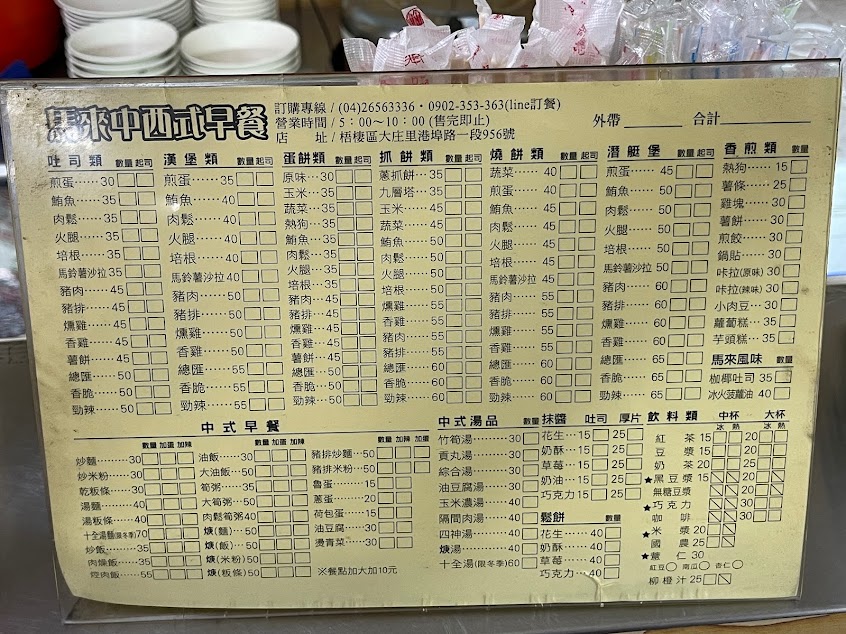 馬來中西式早餐
訂購專線 / (04)26563336・0902-353-363(line訂餐)
營業時間 / 5：00～10：00 (售完即止)
店　　址 / 梧棲區大庄里港埠路一段956號
外帶
合計
吐司類 數量 起司
煎蛋……30
鮪魚……35
肉鬆……35
火腿……35
培根……35
馬鈴薯沙拉35
豬肉……45
豬排……45
燻雞……45
香雞……45
薯餅……45
總匯……50
香脆……50
勁辣……50
漢堡類 數量 起司
煎蛋……35
鮪魚……40
肉鬆……40
火腿……40
培根……40
馬鈴薯沙拉40
豬肉……50
豬排……50
燻雞……50
香雞……50
總匯……55
香脆……55
勁辣……55
蛋餅類 數量 起司
原味…30
玉米…35
蔬菜…35
熱狗…35
鮪魚…35
肉鬆…35
火腿…35
培根…35
豬肉…45
豬排…45
燻雞…45
香雞…45
薯餅…45
總匯…50
香脆…50
勁辣…50
抓餅類 數量 起司
蔥抓餅…35
九層塔…35
玉米……45
蔬菜……45
鮪魚……50
肉鬆……50
火腿……50
培根……50
燻雞……55
香雞……55
豬肉……55
豬排……55
總匯……60
香脆……60
勁辣……60
燒餅類 數量 起司
蔬菜……40
煎蛋……40
鮪魚……45
肉鬆……45
火腿……45
培根……45
馬鈴薯沙拉45
豬肉……55
豬排……55
燻雞……55
香雞……55
總匯……60
香脆……60
勁辣……60
潛艇堡 數量 起司
煎蛋……45
鮪魚……50
肉鬆……50
火腿……50
培根……50
馬鈴薯沙拉50
豬肉……60
豬排……60
燻雞……60
香雞……60
總匯……65
香脆……65
勁辣……65
香煎類 數量
熱狗……15
薯條……25
雞塊……30
薯餅……30
煎餃……30
鍋貼……30
咔拉(原味)30
咔拉(辣味)30
小肉豆…30
蘿蔔糕…35
芋頭糕…35
馬來風味 數量
枷椰吐司 35
冰火菠蘿油 40
中式早餐
數量 加蛋 加辣
炒麵……30
炒米粉…30
乾板條…30
湯麵……30
湯板條…30
十全湯麵(限冬季)70
炒飯……35
肉燥飯…35
焢肉飯…55
數量 加蛋 加辣
油飯……30
大油飯…50
筍粥……35
大筍粥…50
肉鬆筍粥40
焿(麵)…50
焿(飯)…50
焿(米粉)50
焿(板條)50
數量 加辣
豬排炒麵…50
豬排米粉…50
魯蛋……15
蔥蛋……20
荷包蛋…15
油豆腐…30
燙青菜…30
※餐點加大加10元
中式湯品 數量
竹筍湯……30
貢丸湯……30
綜合湯……30
油豆腐湯…30
玉米濃湯…40
隔間肉湯…40
四神湯……40
焿湯………40
十全湯(限冬季)60
抹醬 吐司 厚片
花生…15 25
奶酥…15 25
草莓…15 25
奶油…15 25
巧克力15 25
鬆餅 數量
花生……40
奶酥……40
草莓……40
巧克力…40
飲料類 中杯 大杯
冰 熱 冰 熱
紅茶15 20
豆漿15 20
奶茶20 25
★黑豆漿15 20
無糖豆漿
★巧克力
咖啡
★米漿20
國農25
★薏仁30
紅豆○ 南瓜○ 杏仁○
柳橙汁25